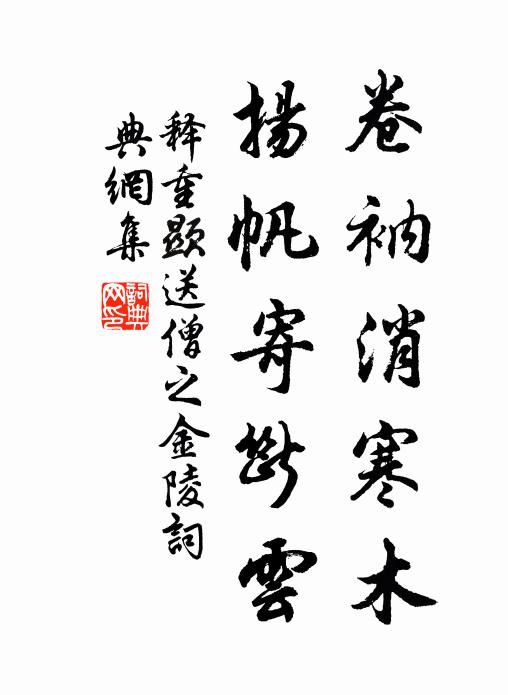 卷衲消寒木
揚帆寄斷雲
释重顯送僧之金陵詞
典網集
詞典網印